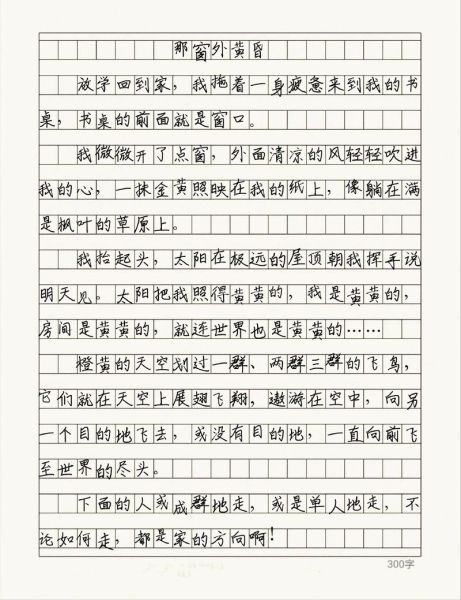 那窗外黄昏
放学回到家，我拖着一身疲惫来到我的书
桌，书桌的前面就是窗口。
我微微开了点窗，外面清凉的风轻轻吹进
我的心，一抹金黄照映在我的纸上，像躺在满
是枫叶的草原上。
我抬起头，太阳在极远的屋顶朝我挥手说
明天见。太阳把我照得黄黄的，我是黄黄的，
房间是黄黄的，就连世界也是黄黄的……
橙黄的天空划过一群、两群三群的飞鸟，
它们就在天空上展翅飞翔，遨游在空中，向另
一个目的地飞去，或没有目的地，一直向前飞
至世界的尽头。
下面的人或成群地走，或是单人地走，不
论如何走，都是家的方向啊！
300字